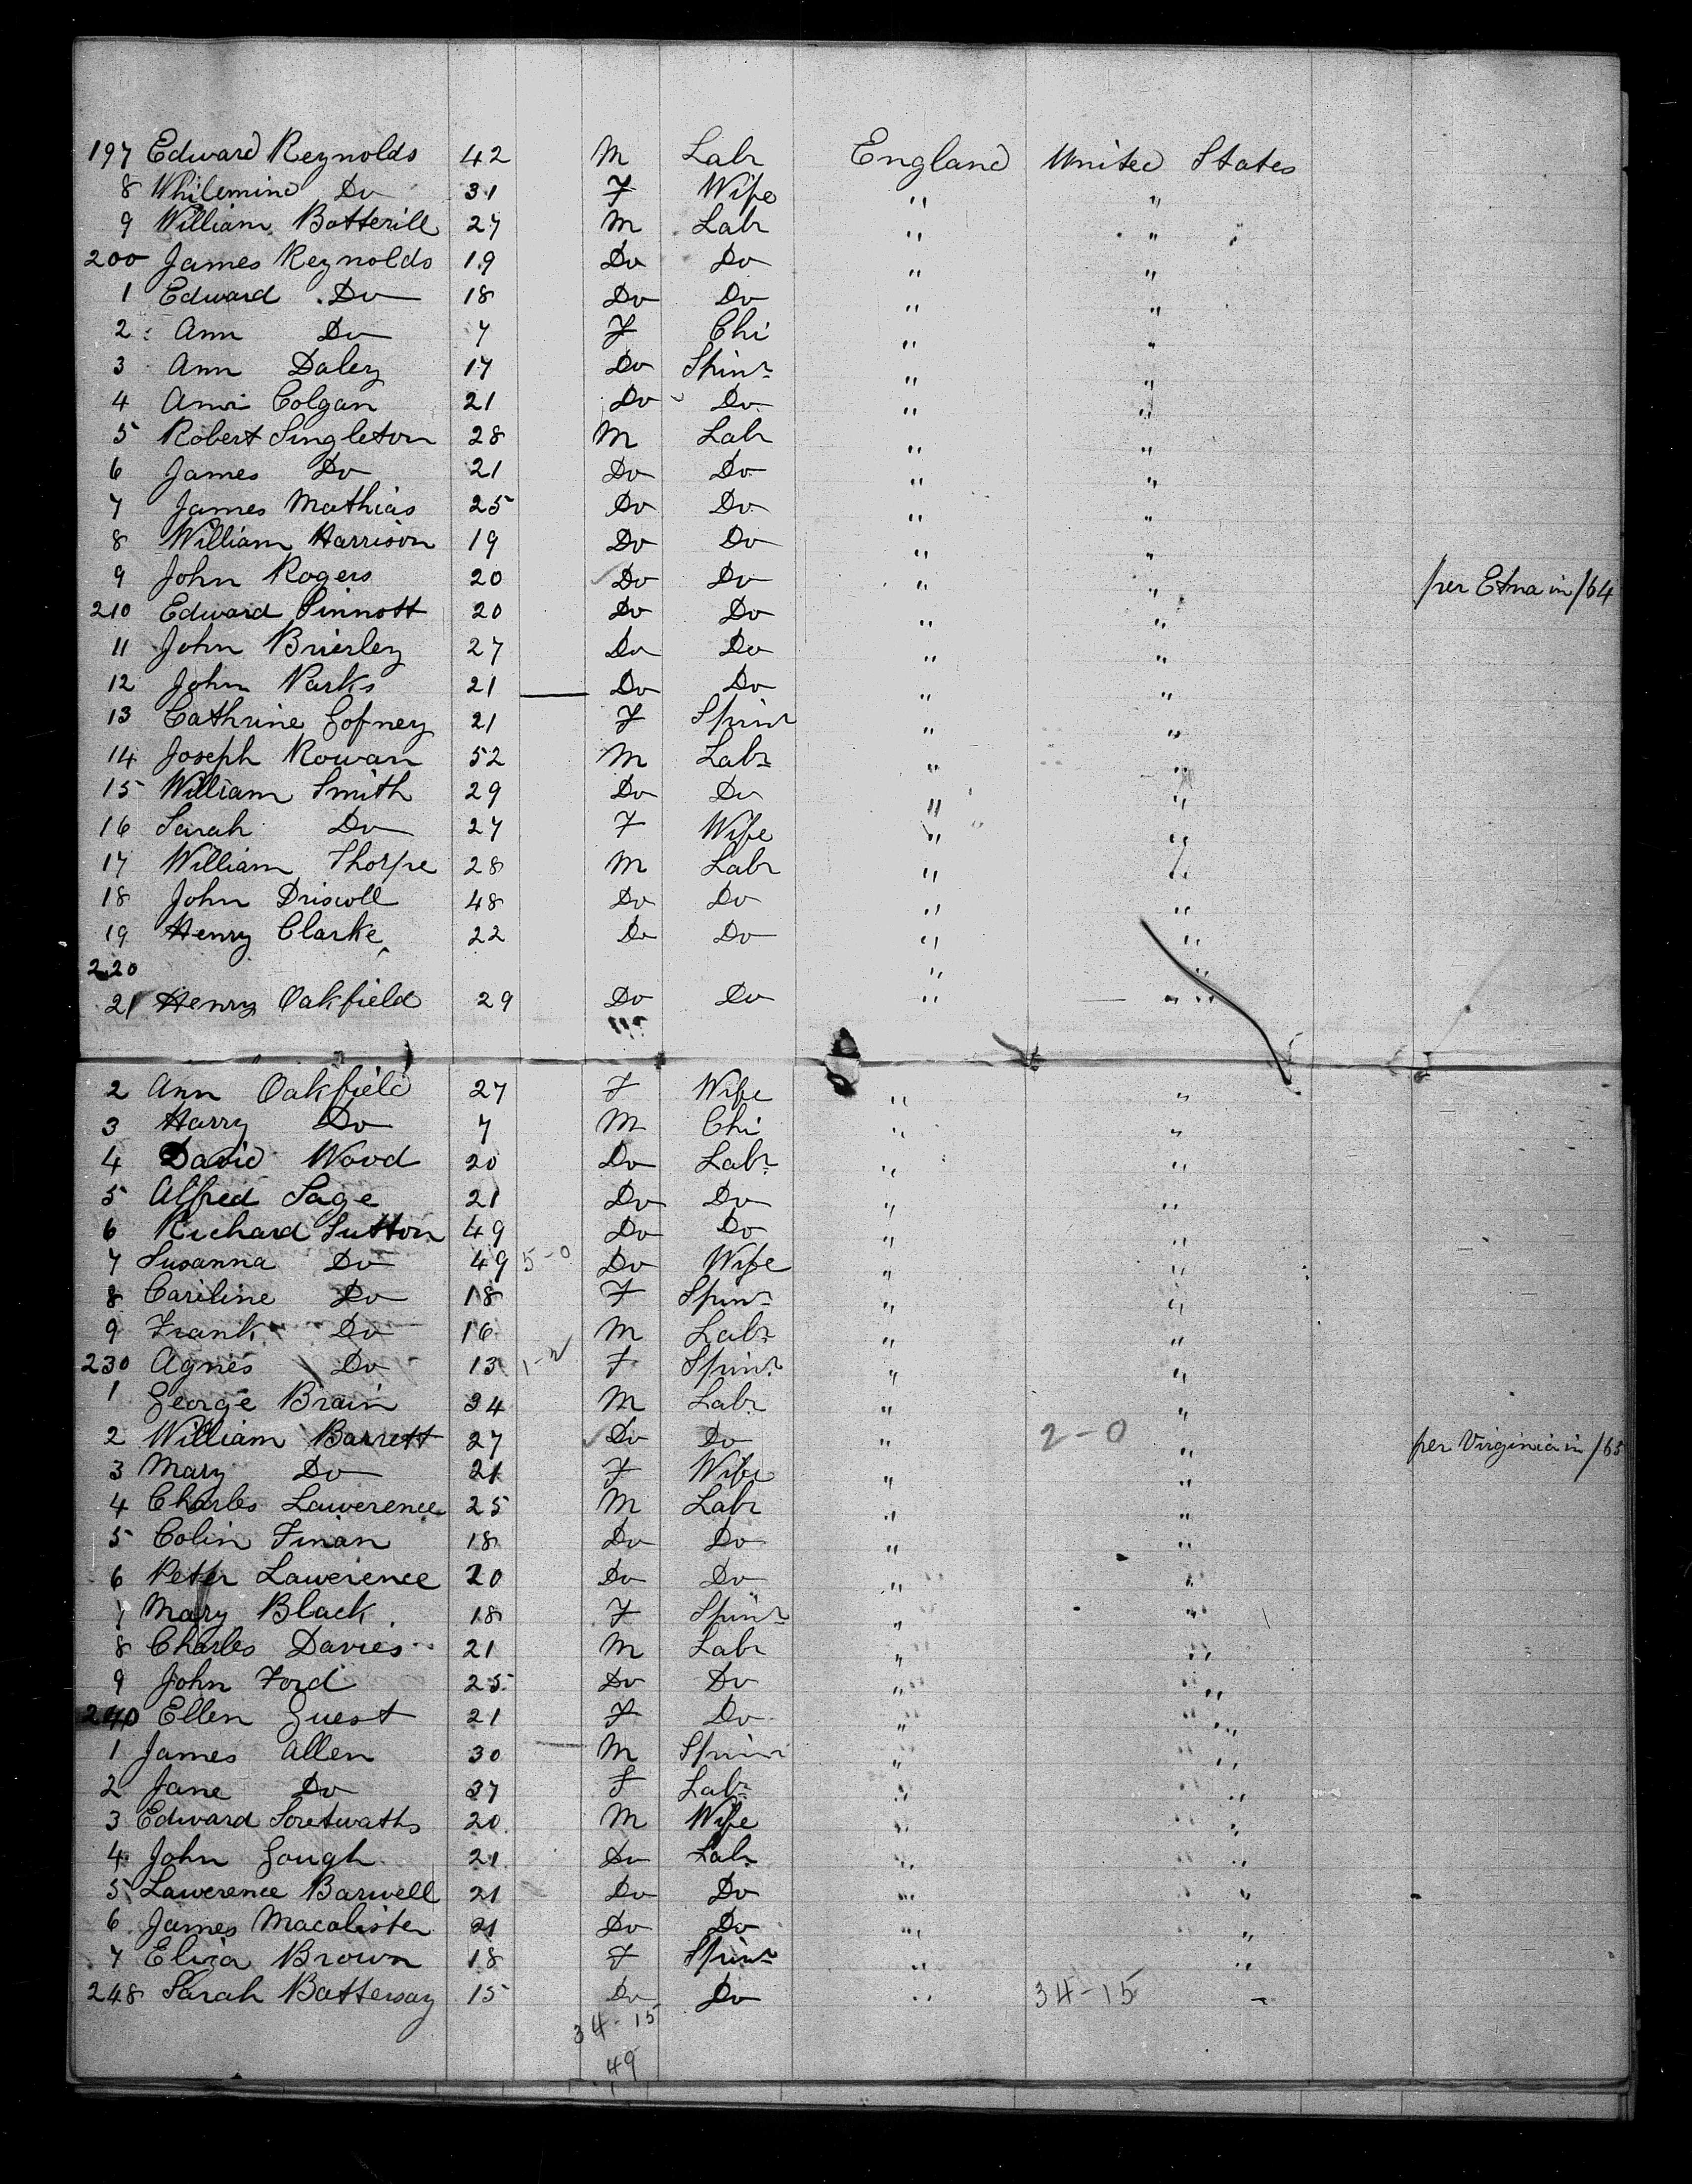 197 Edward Reynolds 42 M Labr England United States
8 Whilemina Do 31 F Wife " "
9 William Botterill 27 M Labr " "
200 James Reynolds 19 Do Do " "
1 Edward Do 18 Do Do " "
2 Ann Do 7 F Chi " "
3 Ann Daley 17 Do Spinr " "
4 Ann Colgan 21 Do Do " "
5 Robert Singleton 28 M Labr " "
6 James Do 21 Do Do " "
7 James Mathias 25 Do Do " "
8 William Harrison 19 Do Do " "
9 John Rogers 20 Do Do " " per Etna in /64
210 Edward Sinnott 20 Do Do " "
11 John Brierley 27 Do Do " "
12 John Parks 21 Do Do " "
13 Cathrine Gofney 21 F Spinr " "
14 Joseph Rowan 52 M Labr " "
15 William Smith 29 Do Do " "
16 Sarah Do 27 F Wife " "
17 William Thorpe 28 M Labr " "
18 John Driscoll 48 Do Do " "
19 Henry Clarke 22 Do Do " "
220 " "
21 Henry Oakfield 29 Do Do " "
2 Ann Oakfield 27 F Wife " "
3 Harry Do 7 M Chi " "
4 David Wood 20 Do Labr " "
5 Alfred Sage 21 Do Do " "
6 Richard Sutton 49 Do Do " "
7 Susanna Do 49 5-0 Do Wife " "
8 Cariline Do 18 F Spinr " "
9 Frank Do 16 M Labr " "
230 Agnes Do 13 F Spinr " "
1 George Brain 34 M Labr " "
2 William Barrett 27 Do Do " 2-0 " per Virginia in /65
3 Mary Do 21 F Wife " "
4 Charles Lawerence 25 M Labr " "
5 Colin Finan 18 Do Do " "
6 Peter Lawerence 20 Do Do " "
7 Mary Black 18 F Spinr " "
8 Charles Davies 21 M Labr " "
9 John Ford 25 Do Do " "
240 Ellen Guest 21 F Do " "
1 James Allen 30 M Spinr " "
2 Jane Do 37 F Labr " "
3 Edward 20 M Wife " "
4 John Gough 21 Do Labr " "
5 Lawerence Barwell 21 Do Do " "
6 James Macalister 21 Do Do " "
7 Eliza Brown 18 F Spinr " "
248 Sarah Battersay 15 Do Do " 34-15 "
34-15
49